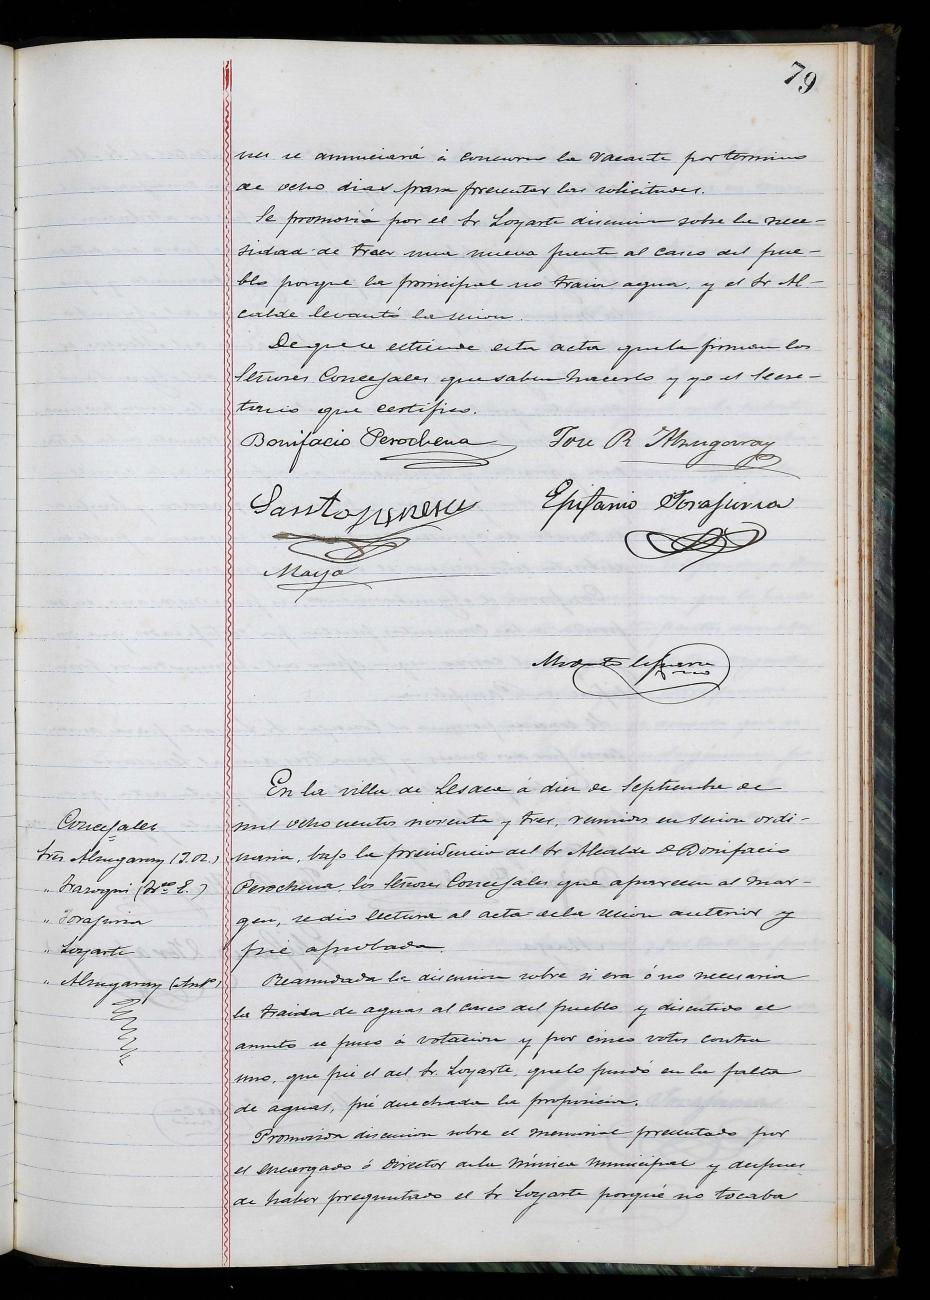 79
nes se anunciará á concurso la vacante por termino
de ocho dias para presentar las solicitudes.
Se promovió por el Sr Loyarte discusion sobre la nece-
sidad de traer una nueva fuente al casco del pue-
blo porque la principal no traia agua, y el Sr Al-
calde levantó la sesion.
De que se estiende esta acta que la firman los
Señores Concejales que saben hacerlo y yo el Secre-
tario que certifico.
Bonifacio Perochena
José R Almugaray
Santo
Epifanio Torajurria
Maya
En la villa de Lesaca á diez de Septiembre de
mil ochocientos noventa y tres, reunidos en sesion ordi-
naria, bajo la presidencia del Sr Alcalde D Bonifacio
Perochena, los Señores Concejales que aparecen al mar-
gen, se dio lectura al acta de la sesion anterior y
fué aprobada.
Concejales
Sres Almugaray (J. R.)
" Irazoqui (Fco E.)
" Torajurria
" Loyarte
" Almugaray (Anto)
Reanudada la discusion sobre si era ó no necesaria
la traida de aguas al casco del pueblo y discutido el
asunto se puso á votacion y por cinco votos contra
uno, que fué el del Sr. Loyarte, que lo fundó en la falta
de aguas, fué desechada la proposicion.
Promovida discusion sobre el memorial presentado por
el encargado ó director de la música municipal y despues
de haber preguntado el Sr Loyarte porqué no tocaba